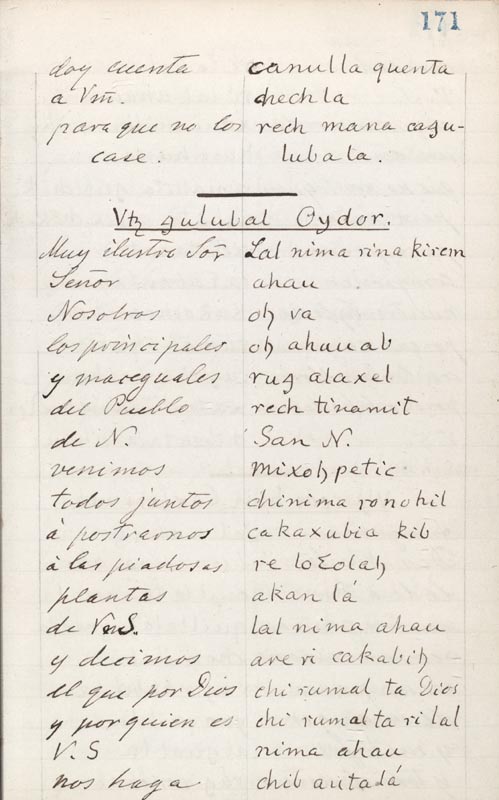 171
doy cuenta canulla quenta
a Vm. chech la
para que no los rech mana cagu-
case. lubata.
Vtz gulubal Oydor.
Muy ilustre Sōr Lal nima rina kirem
Señor ahau
Nosotros oꜧ va
los principales oꜧ ahauab
y maceguales rug alaxel
del Pueblo rech tinamit
de N. San N.
venimos mixoꜧpetic
todos juntos chinima ronohil
á postrarnos cakaxubia kib
á las piadosas re loƐolaꜧ
plantas akan lá
de VmS. lal nima ahau
y decimos are ri cakabiꜧ
el que por Dios chi rumal ta Dios
y por quien es chi rumal ta ri lal
V. S nima ahau
nos haga chib autadá